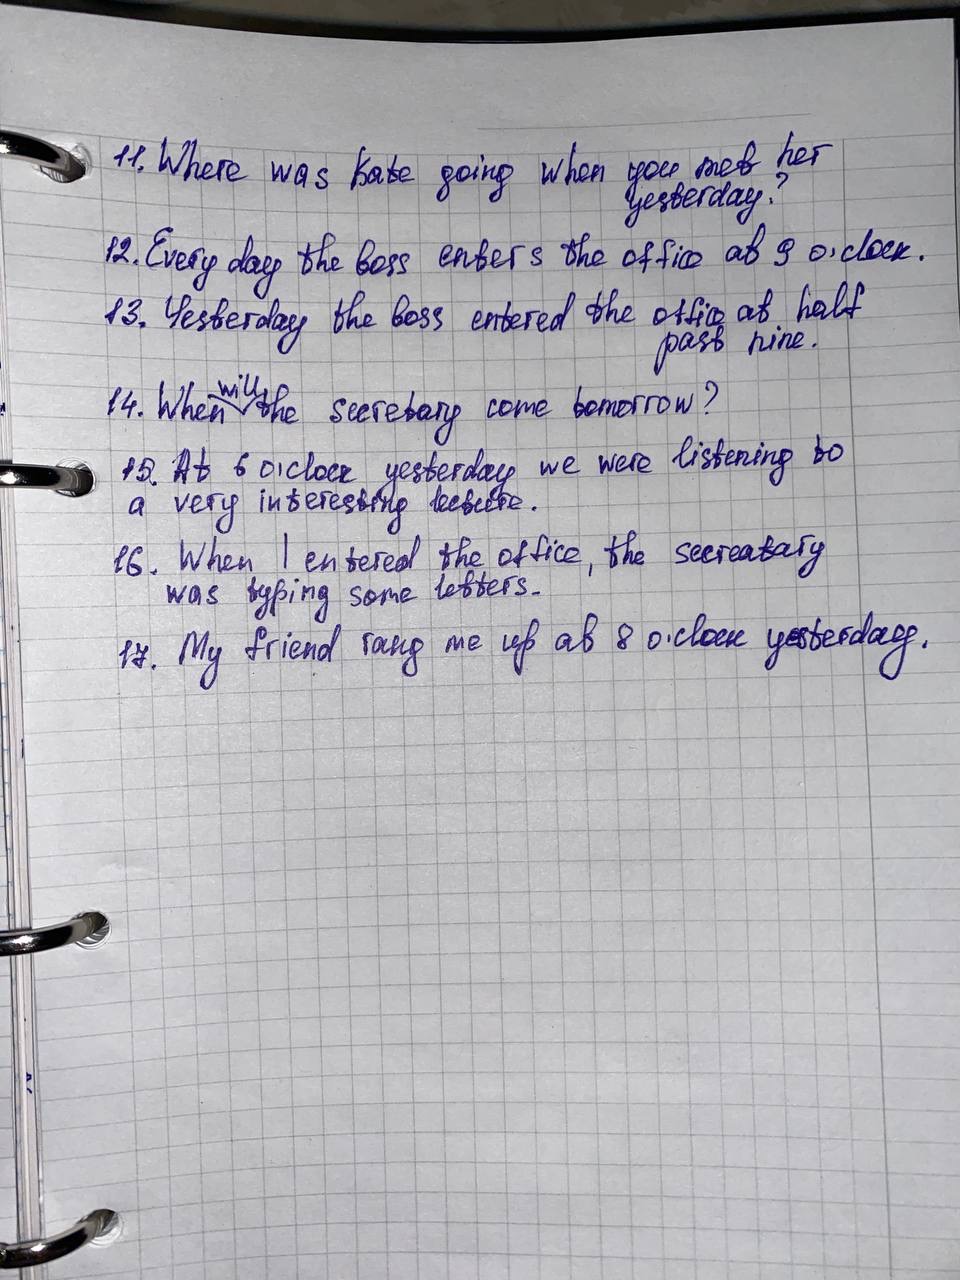 11. Where was Kate going when you met her
yesterday?
12. Every day the boss enters the office at 9 o'clock.
13. Yesterday the boss entered the office at half
past nine.
14. When will the secretary come tomorrow?
15. At 6 o'clock yesterday we were listening to
a very interesting lecture.
16. When I entered the office, the secreatary
was typing some letters.
17. My friend rang me up at 8 o'clock yesterday.